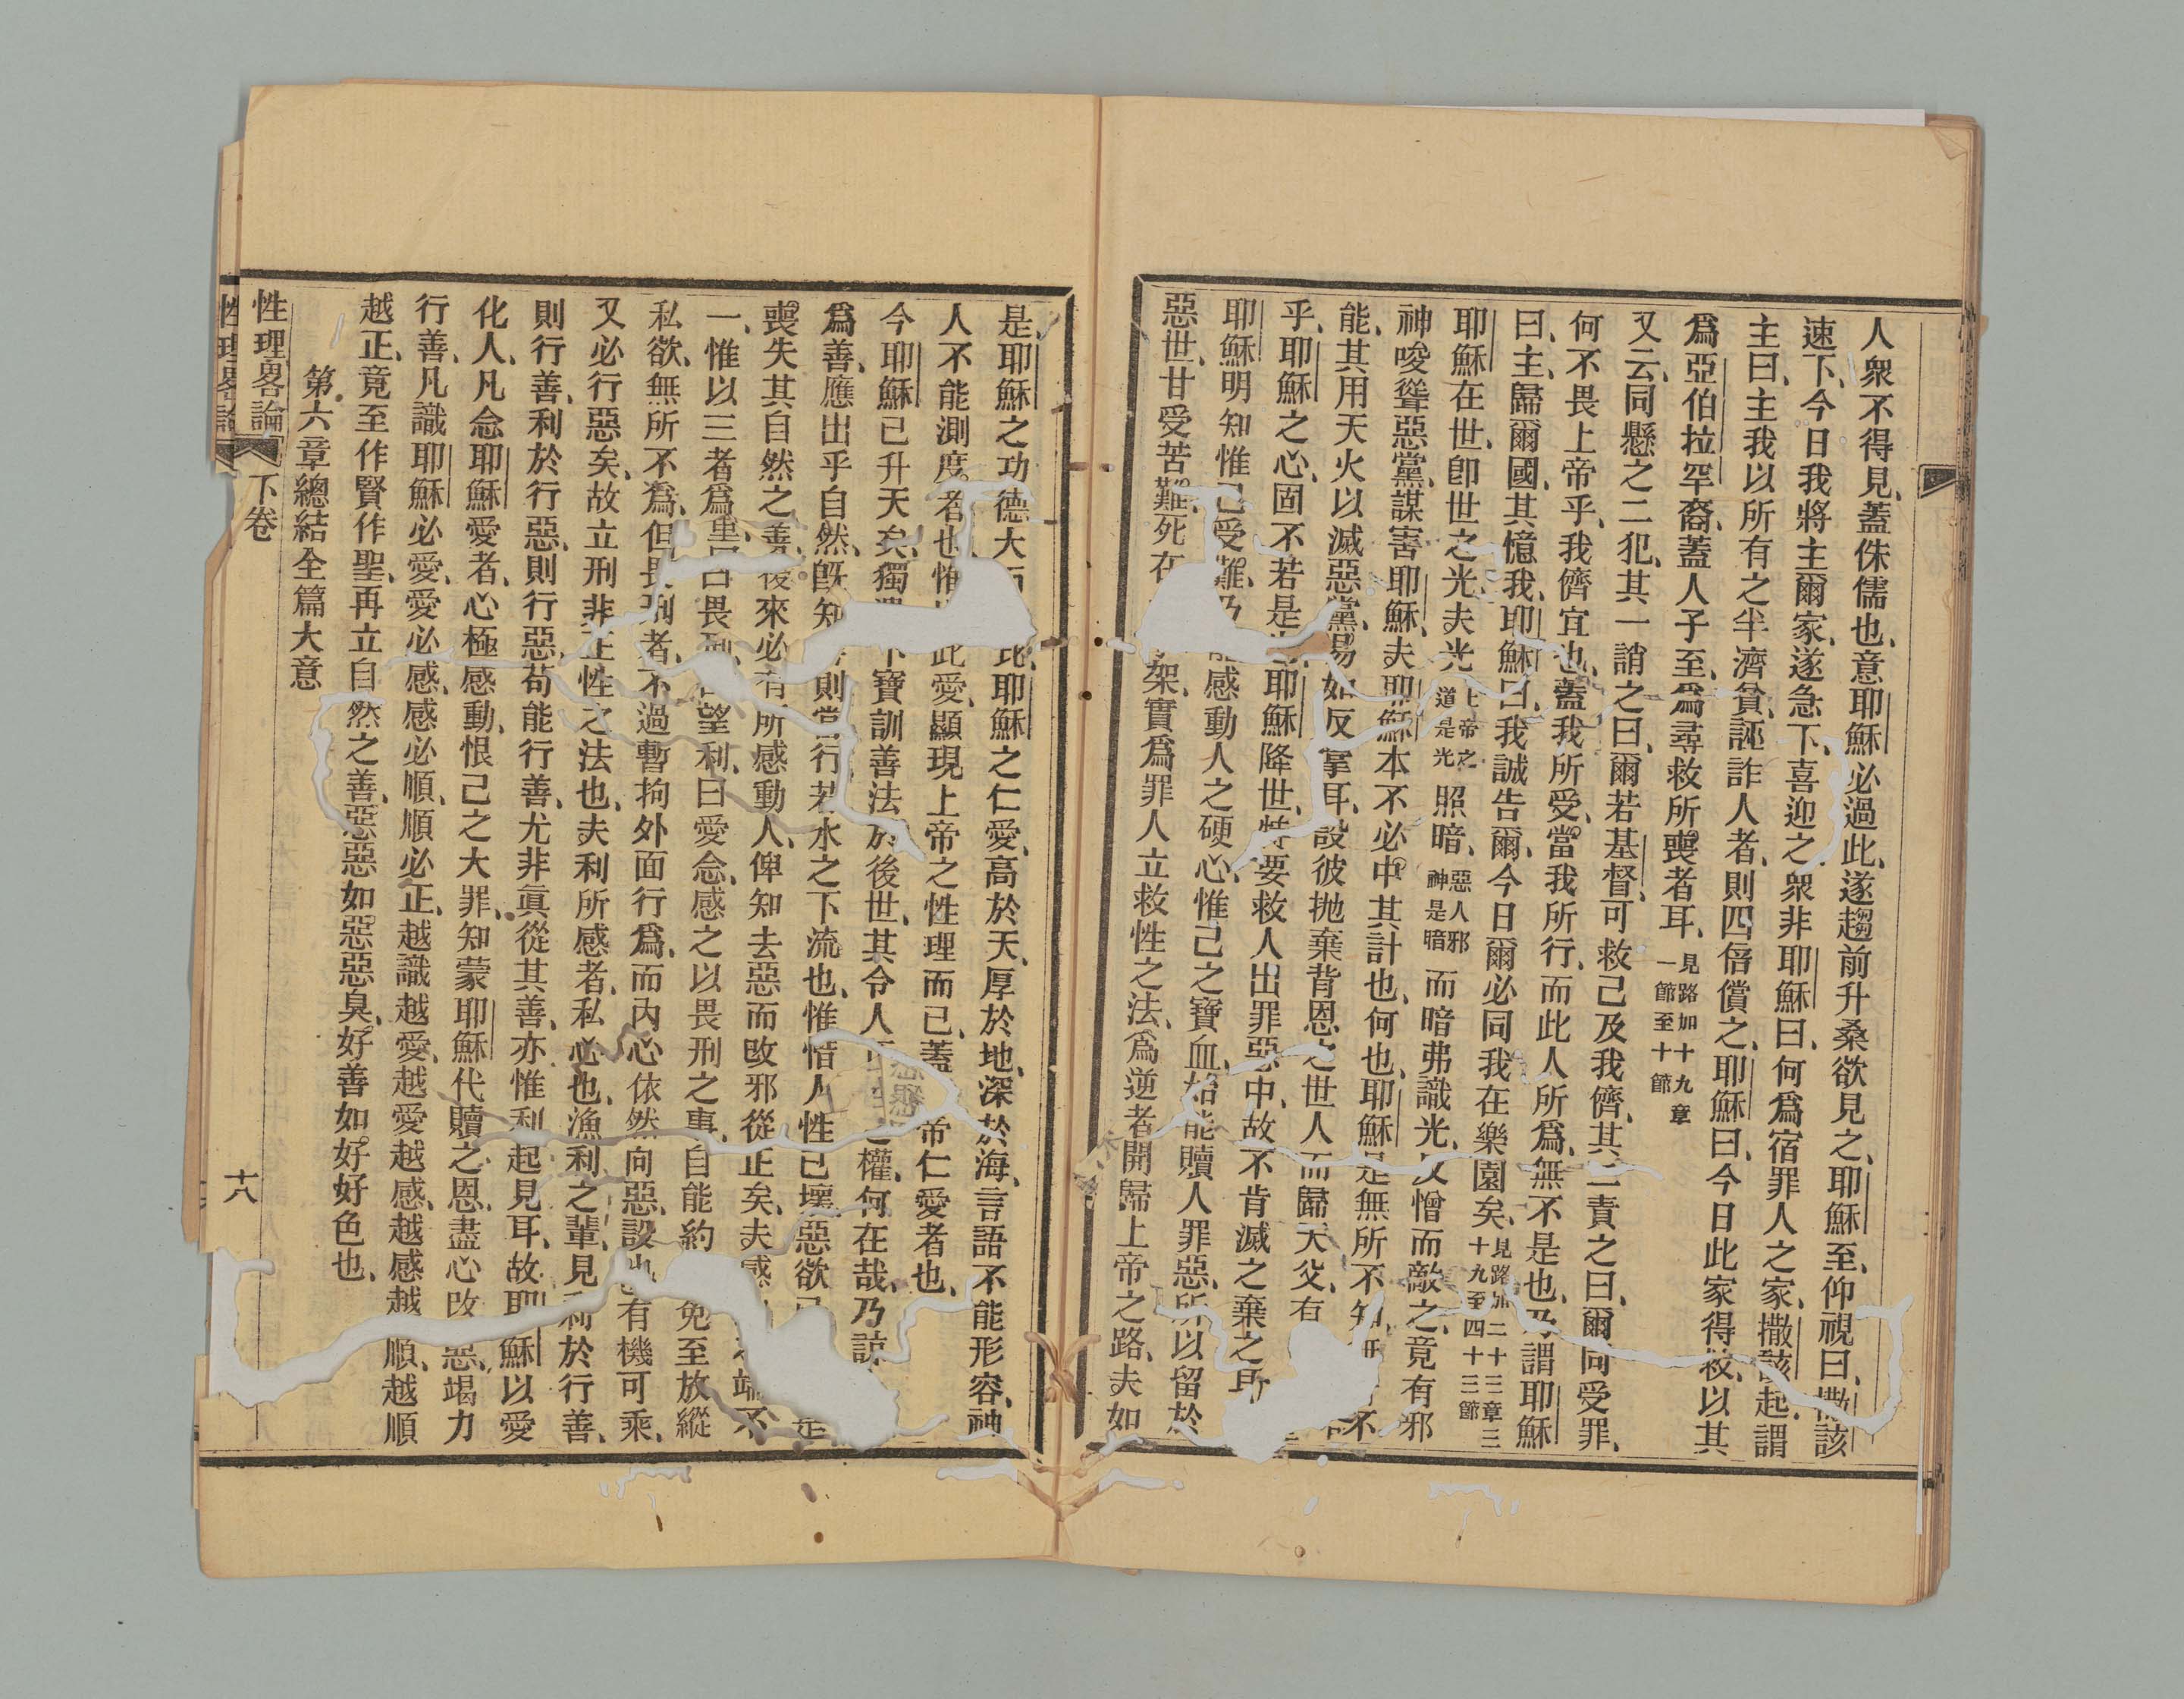 人衆不得見、蓋侏儒也、意耶穌必過此、遂趨前升桑欲見之、耶穌至、仰視曰、撒該
速下、今日我將主爾家、遂急下、喜迎之、衆非耶穌曰、何爲宿罪人之家、撒該起、謂
主曰、主我以所有之半濟貧、誣詐人者、則四倍償之、耶穌曰、今日此家得救、以其
爲亞伯拉罕裔、蓋人子至、爲尋救所喪者耳、見路加十九章一節至十節
又云、同懸之二犯、其一誚之曰、爾若基督、可救己及我儕、其一責之曰、爾同受罪、
何不畏上帝乎、我儕宜也、蓋我所受、當我所行、而此人所爲、無不是也、乃謂耶穌
曰、主、歸爾國、其憶我、耶穌曰、我誠告爾、今日爾必同我在樂園矣、見路加二十三章三十九至四十三節
耶穌在世、卽世之光、夫光上帝之道是光照暗、惡人邪神是暗而暗弗識光、反憎而敵之、竟有邪
神唆聳惡黨、謀害耶穌、夫耶穌本不必中其計也、何也、耶穌是無所不知、不
能、其用天火以滅惡黨、易如反掌耳、設彼拋棄背恩之世人而歸天父、有
乎、耶穌之心、固不若是、耶穌降世、特要救人出罪惡中、故不肯滅之棄之耳
耶穌明知惟己受難、乃能感動人之硬心、惟己之寶血、始能贖人罪惡、所以留於
惡世、甘受苦難、死在架、實爲罪人立救性之法、爲逆者開歸上帝之路、夫如
是、耶穌之功德大、耶穌之仁愛、高於天、厚於地、深於海、言語不能形容、神
人不能測度者也、惟此愛、顯現上帝之性理而已、蓋帝仁愛者也、
今耶穌已升天矣、獨遺下寶訓善法於後世、其令人之權、何在哉、乃諒
爲善、應出乎自然、旣知則當行、若水之下流也、惟惜人性已壞、惡欲是
喪失其自然之善、後來必有所感動人、俾知去惡而改邪從正矣、夫感之端不
一、惟以三者爲重、曰畏刑、曰望利、曰愛念、感之以畏刑之事、自能約免至放縱
私欲、無所不爲、但畏刑者、不過暫拘外面行爲、而內心依然向惡、設有機可乘、
又必行惡矣、故立刑非正性之法也、夫利所感者、私心也、漁利之輩、見利於行善、
則行善、利於行惡、則行惡、苟能行善、尤非眞從其善、亦惟利起見耳、故耶穌以愛
化人、凡念耶穌愛者、心極感動、恨己之大罪、知蒙耶穌代贖之恩、盡心改惡、竭力
行善、凡識耶穌必愛、愛必感、感必順、順必正、越識越愛、越愛越感、越感越順、越順
越正、竟至作賢作聖、再立自然之善、惡惡如惡惡臭、好善如好好色也、
第六章總結全篇大意
性理畧論 下卷 十八
性理畧論